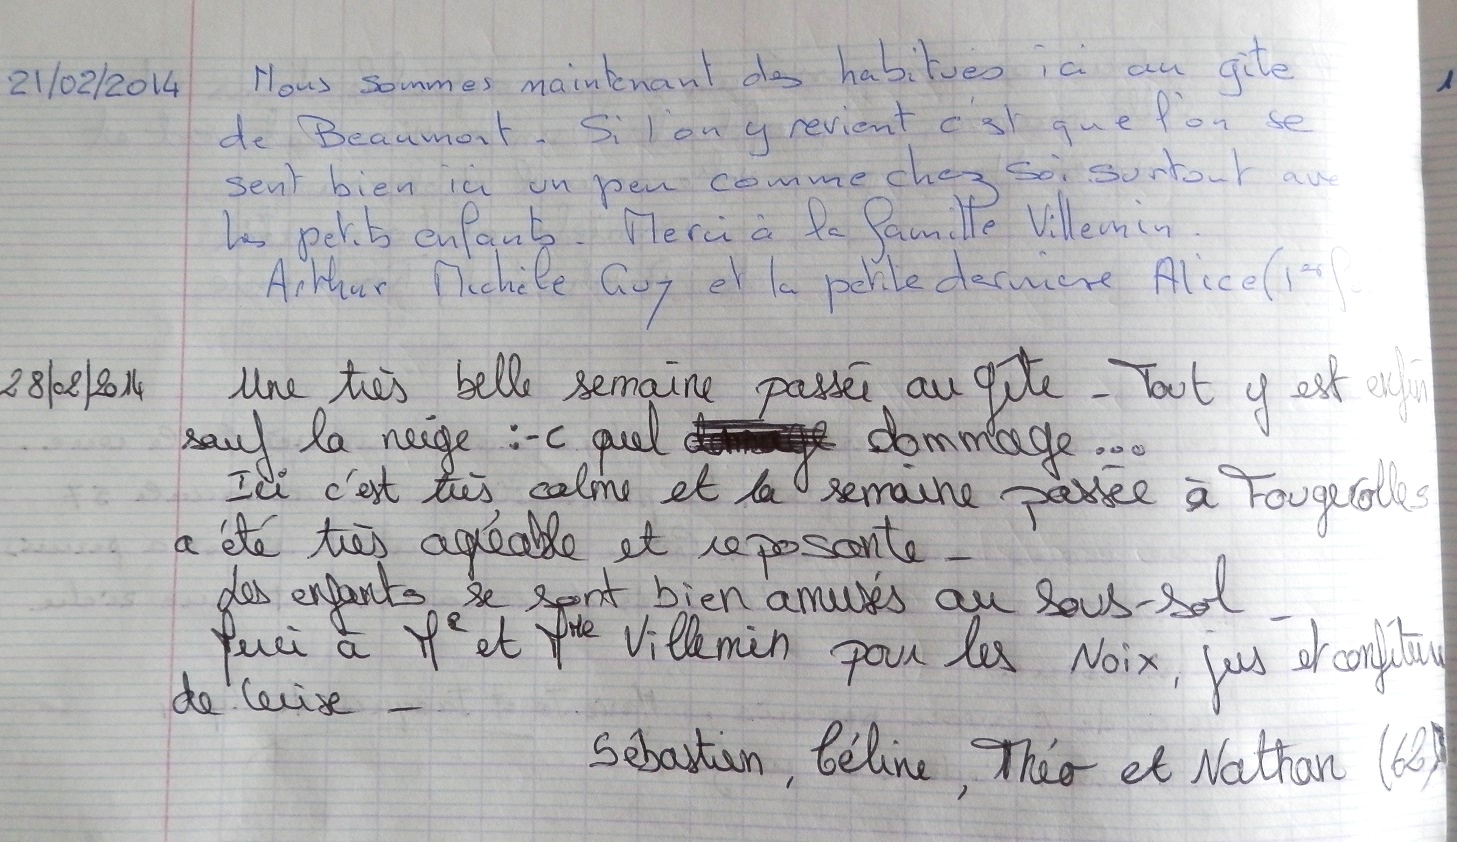 21/02/2014 Nous sommes maintenant des habitués ici au gîte
de Beaumont. Si l'on y revient c'est que l'on se
sent bien ici un peu comme chez soi surtout ave
les petits enfants. Merci à la famille Villemin.
Arthur Michèle Guy et la petite dernière Alice (1er
28/02/2014 Une très belle semaine passée au gîte - Tout y est enfin
sauf la neige :-c quel dommage...
Ici c'est très calme et la semaine passée à Fougerolles
a été très agréable et reposante -
Les enfants se sont bien amusés au sous-sol -
Merci à Mr et Mme Villemin pour les Noix, jus et confiture
de Cerise -
Sébastien, Céline, Théo et Nathan (62)